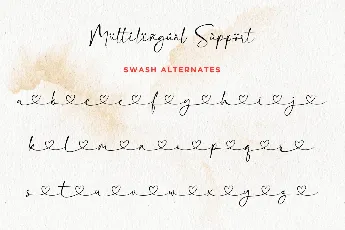 Múltilingúal Súppört
SWASH ALTERNATES
a b c c e f g h i j
k l m n i p q r
s t u v w x y z